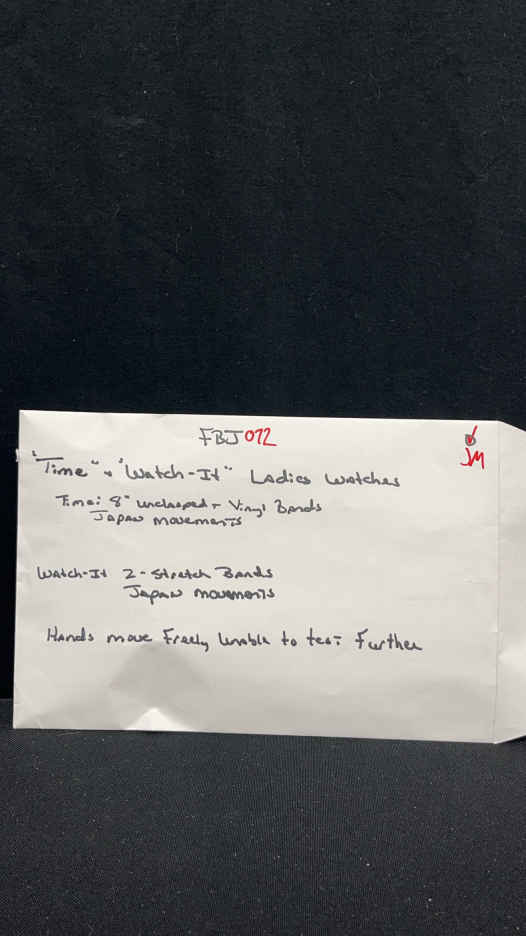 FBJ072
JM
"Time" + "Watch-It" Ladies Watches
Time: 8" unclasped - Vinyl Bands
Japan movements
Watch-It 2-Stretch Bands
Japan movements
Hands move Freely Unable to test Further